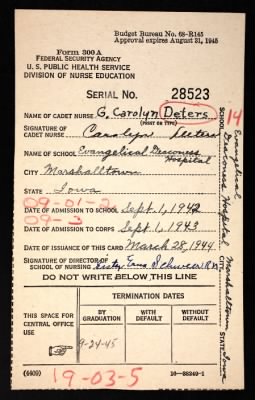 Budget Bureau No. 68-R145
Approval expires August 31, 1945
Form 300A
FEDERAL SECURITY AGENCY
U. S. PUBLIC HEALTH SERVICE
DIVISION OF NURSE EDUCATION
SERIAL NO. 28523
NAME OF CADET NURSE G. Carolyn Deters
(PRINT OR TYPE)
SIGNATURE OF CADET NURSE Carolyn Deters
NAME OF SCHOOL Evangelical Deaconess Hospital
CITY Marshalltown
STATE Iowa
09-01-2
DATE OF ADMISSION TO SCHOOL Sept. 1, 1942
09-3
DATE OF ADMISSION TO CORPS Sept. 1, 1943
DATE OF ISSUANCE OF THIS CARD March 28, 1944
SIGNATURE OF DIRECTOR OF SCHOOL OF NURSING Sister R.N.
DO NOT WRITE BELOW THIS LINE
THIS SPACE FOR CENTRAL OFFICE USE
TERMINATION DATES
BY GRADUATION
WITH DEFAULT
WITHOUT DEFAULT
9-24-45
(4409)
19-03-5
16-38249-1
14
SCHOOL Evangelical Deaconess Hospital
CITY Marshalltown
STATE Iowa